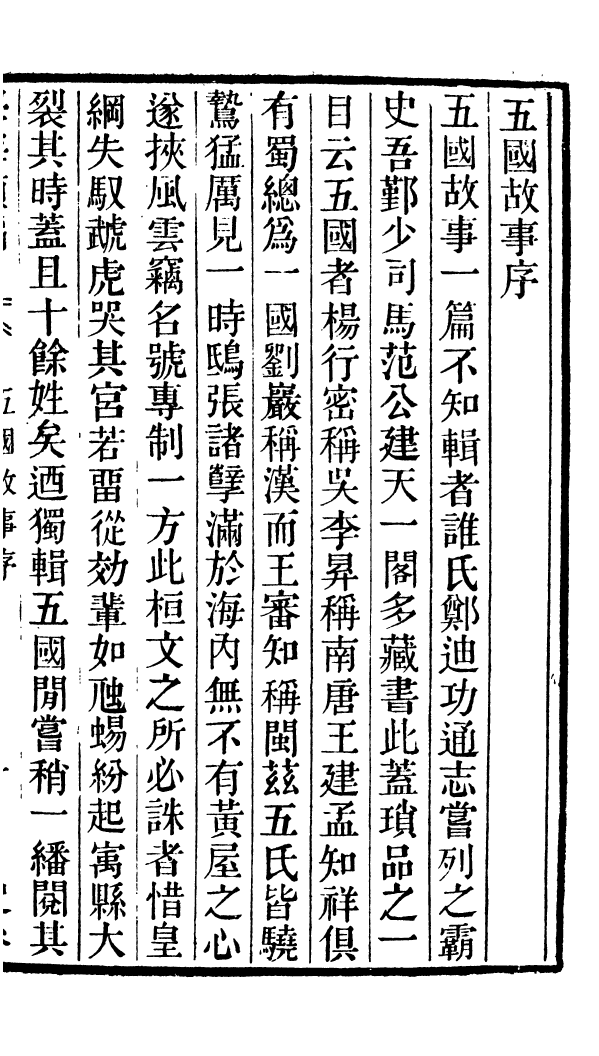 五國故事序
五國故事一篇不知輯者誰氏鄭迪功通志嘗列之霸
史吾鄞少司馬范公建天一閣多藏書此蓋瑣品之一
目云五國者楊行密稱吳李昪稱南唐王建孟知祥俱
有蜀總爲一國劉巖稱漢而王審知稱閩茲五氏皆驍
鷙猛厲見一時鴟張諸孽滿於海內無不有黃屋之心
遂挾風雲竊名號專制一方此桓文之所必誅者惜皇
綱失馭虣虎哭其宮若畱從効輩如虺蜴紛起寓縣大
裂其時蓋且十餘姓矣迺獨輯五國閒嘗稍一繙閱其
五國故事序